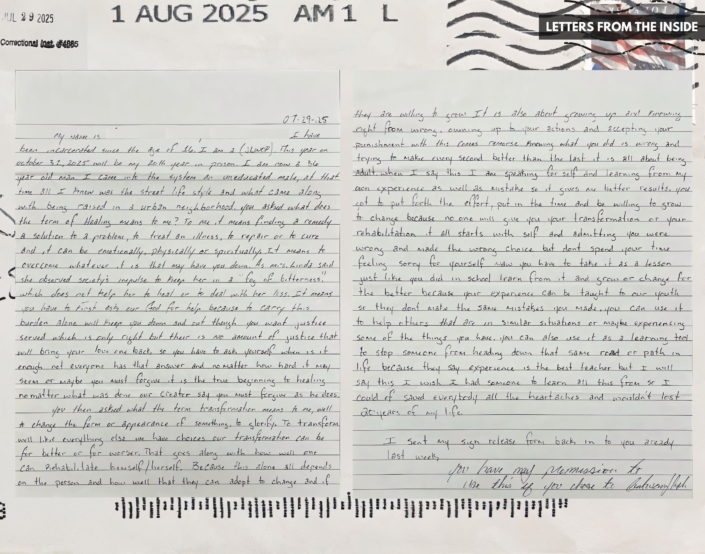 JUL 29 2025
Correctional Inst. #4885
1 AUG 2025 AM 1 L
LETTERS FROM THE INSIDE
07-29-25
My name is I have
been incarcerated since the age of 16. I am a (JLWOP). This year on
october 31, 2025 will be my 20th year in prison. I am now a 36
year old man I came into the system an uneducated male, at that
time all I knew was the street life style and what came along
with being raised in a urban neighborhood. you asked what does
the term of Healing means to me? To me it means finding a remedy
a solution to a problem, to treat an illness, to repair or to cure
and it can be emotionally, physically or spiritually. It means to
overcome whatever it is that may have you down. As Mrs. Linda said
she observed society's impulse to keep her in a "fog of bitterness."
which does not help her to heal or to deal with her loss. It means
you have to first ask our God for help because to carry this
burden alone will keep you down and out though you want justice
served which is only right but their is no amount of justice that
will bring your love one back, so you have to ask yourself when is it
enough. not everyone has that answer and no matter how hard it may
seem or maybe you must forgive it is the true beginning to healing
no matter what was done our creator say you must forgive as he does.
you then asked what the term transformation means to me, well
a change the form or appearance of something, to glorify. To transform
well like everything else we have choices our transformation can be
for better or for worser. That goes along with how well one
can rehabilitate himself/herself. Because this alone all depends
on the person and how well that they can adopt to change and if
they are willing to grow. It is also about growing up and knowing
right from wrong, owning up to your actions and accepting your
punishment with this comes remorse knowing what you did is wrong and
trying to make every second better than the last it is all about being
adult when I say this I am speaking for self and learning from my
own experience as well as mistake so it gives me better results. you
got to put forth the effort, put in the time and be willing to grow
to change because no one will give you your transformation or your
rehabilitation it all starts with self and admitting you were
wrong and made the wrong choice but dont spend your time
feeling sorry for yourself now you have to take it as a lesson
just like you did in school learn from it and grow or change for
the better because your experience can be taught to our youth
so they dont make the same mistakes you made, you can use it
to help others that are in similar situations or maybe experiencing
some of the things you have, you can also use it as a learning tool
to stop someone from heading down that same road or path in
life because they say experience is the best teacher but I will
say this I wish I had someone to learn all this from so I
could of saved everybody all the heartaches and wouldn't lost
20 years of my life.
I sent my sign release form back in to you aready
last week.
you have my permission to
use this if you chose to